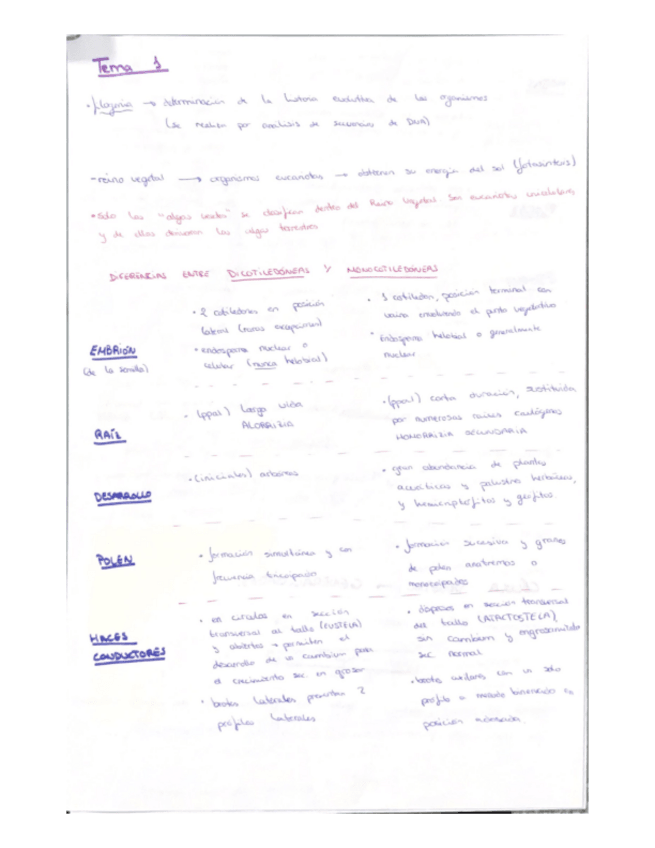 Tema 1
• filogenia → determinación de la historia evolutiva de los organismos
(se realiza por análisis de secuencias de DNA)
- reino vegetal → organismos eucariotas → obtienen su energía del sol (fotosíntesis)
• solo las "algas verdes" se clasifican dentro del Reino Vegetal. Son eucariotas unicelulares
y de ellas derivaron las algas terrestres
DIFERENCIAS ENTRE DICOTILEDÓNEAS Y MONOCOTILEDÓNEAS
EMBRIÓN
(de la semilla)
• 2 cotiledones en posición
lateral (raras excepciones)
• endosperma nuclear o
celular (nunca helobial)
• 1 cotiledón, posición terminal con
vaina envolviendo el punto vegetativo
• Endosperma helobial o generalmente
nuclear
RAÍZ
• (ppal) larga vida
ALORRIZIA
• (ppal) corta duración, sustituida
por numerosas raíces caulógenas
HOMORRIZIA SECUNDARIA
DESARROLLO
• (iniciales) arbóreas
• gran abundancia de plantas
acuáticas y palustres herbáceas,
y hemicriptófitos y geófitos.
POLEN
• formación simultánea y con
frecuencia tricolpado
• formación sucesiva y granos
de polen anatremos o
monocolpados
HACES
CONDUCTORES
• en círculos en sección
transversal al tallo (EUSTELA)
y abiertos → permiten el
desarrollo de un cambium para
el crecimiento sec. en grosor
• brotes laterales presentan 2
profilos laterales
• dispersos en sección transversal
del tallo (ATACTOSTELA)
sin cambium y engrosamiento
sec. normal
• brotes axilares con un solo
profilo a menudo binervado en
posición adosada.